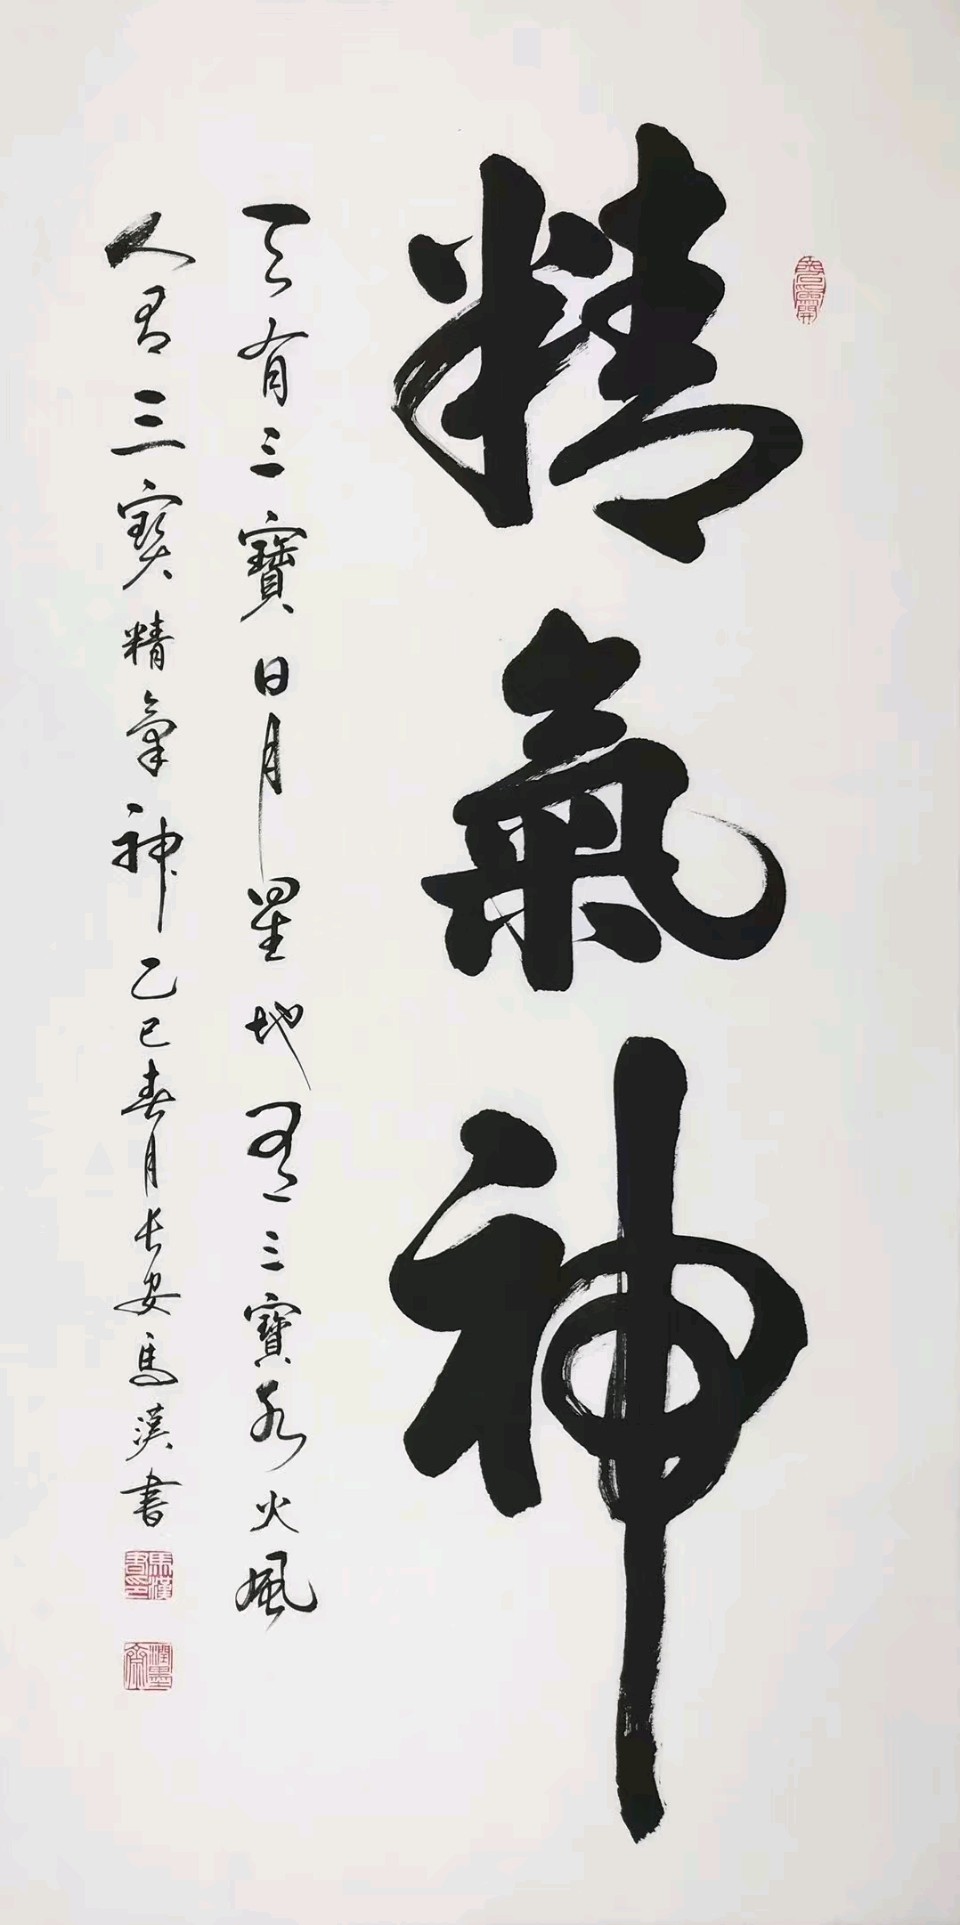 精氣神
天有三寶日月星地有三寶水火風
人有三寶精氣神乙巳春月長安馬漢書
馬漢書印
潤墨齋